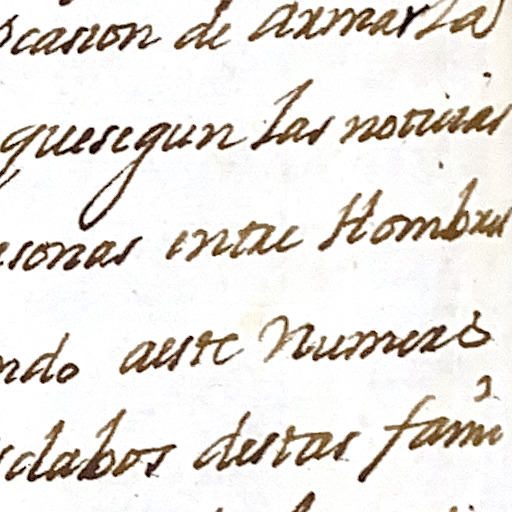 ocasion de armar la
quesegun las noticias
esonas entre Hombres
ndo aeste Numero
sclabos destas fami